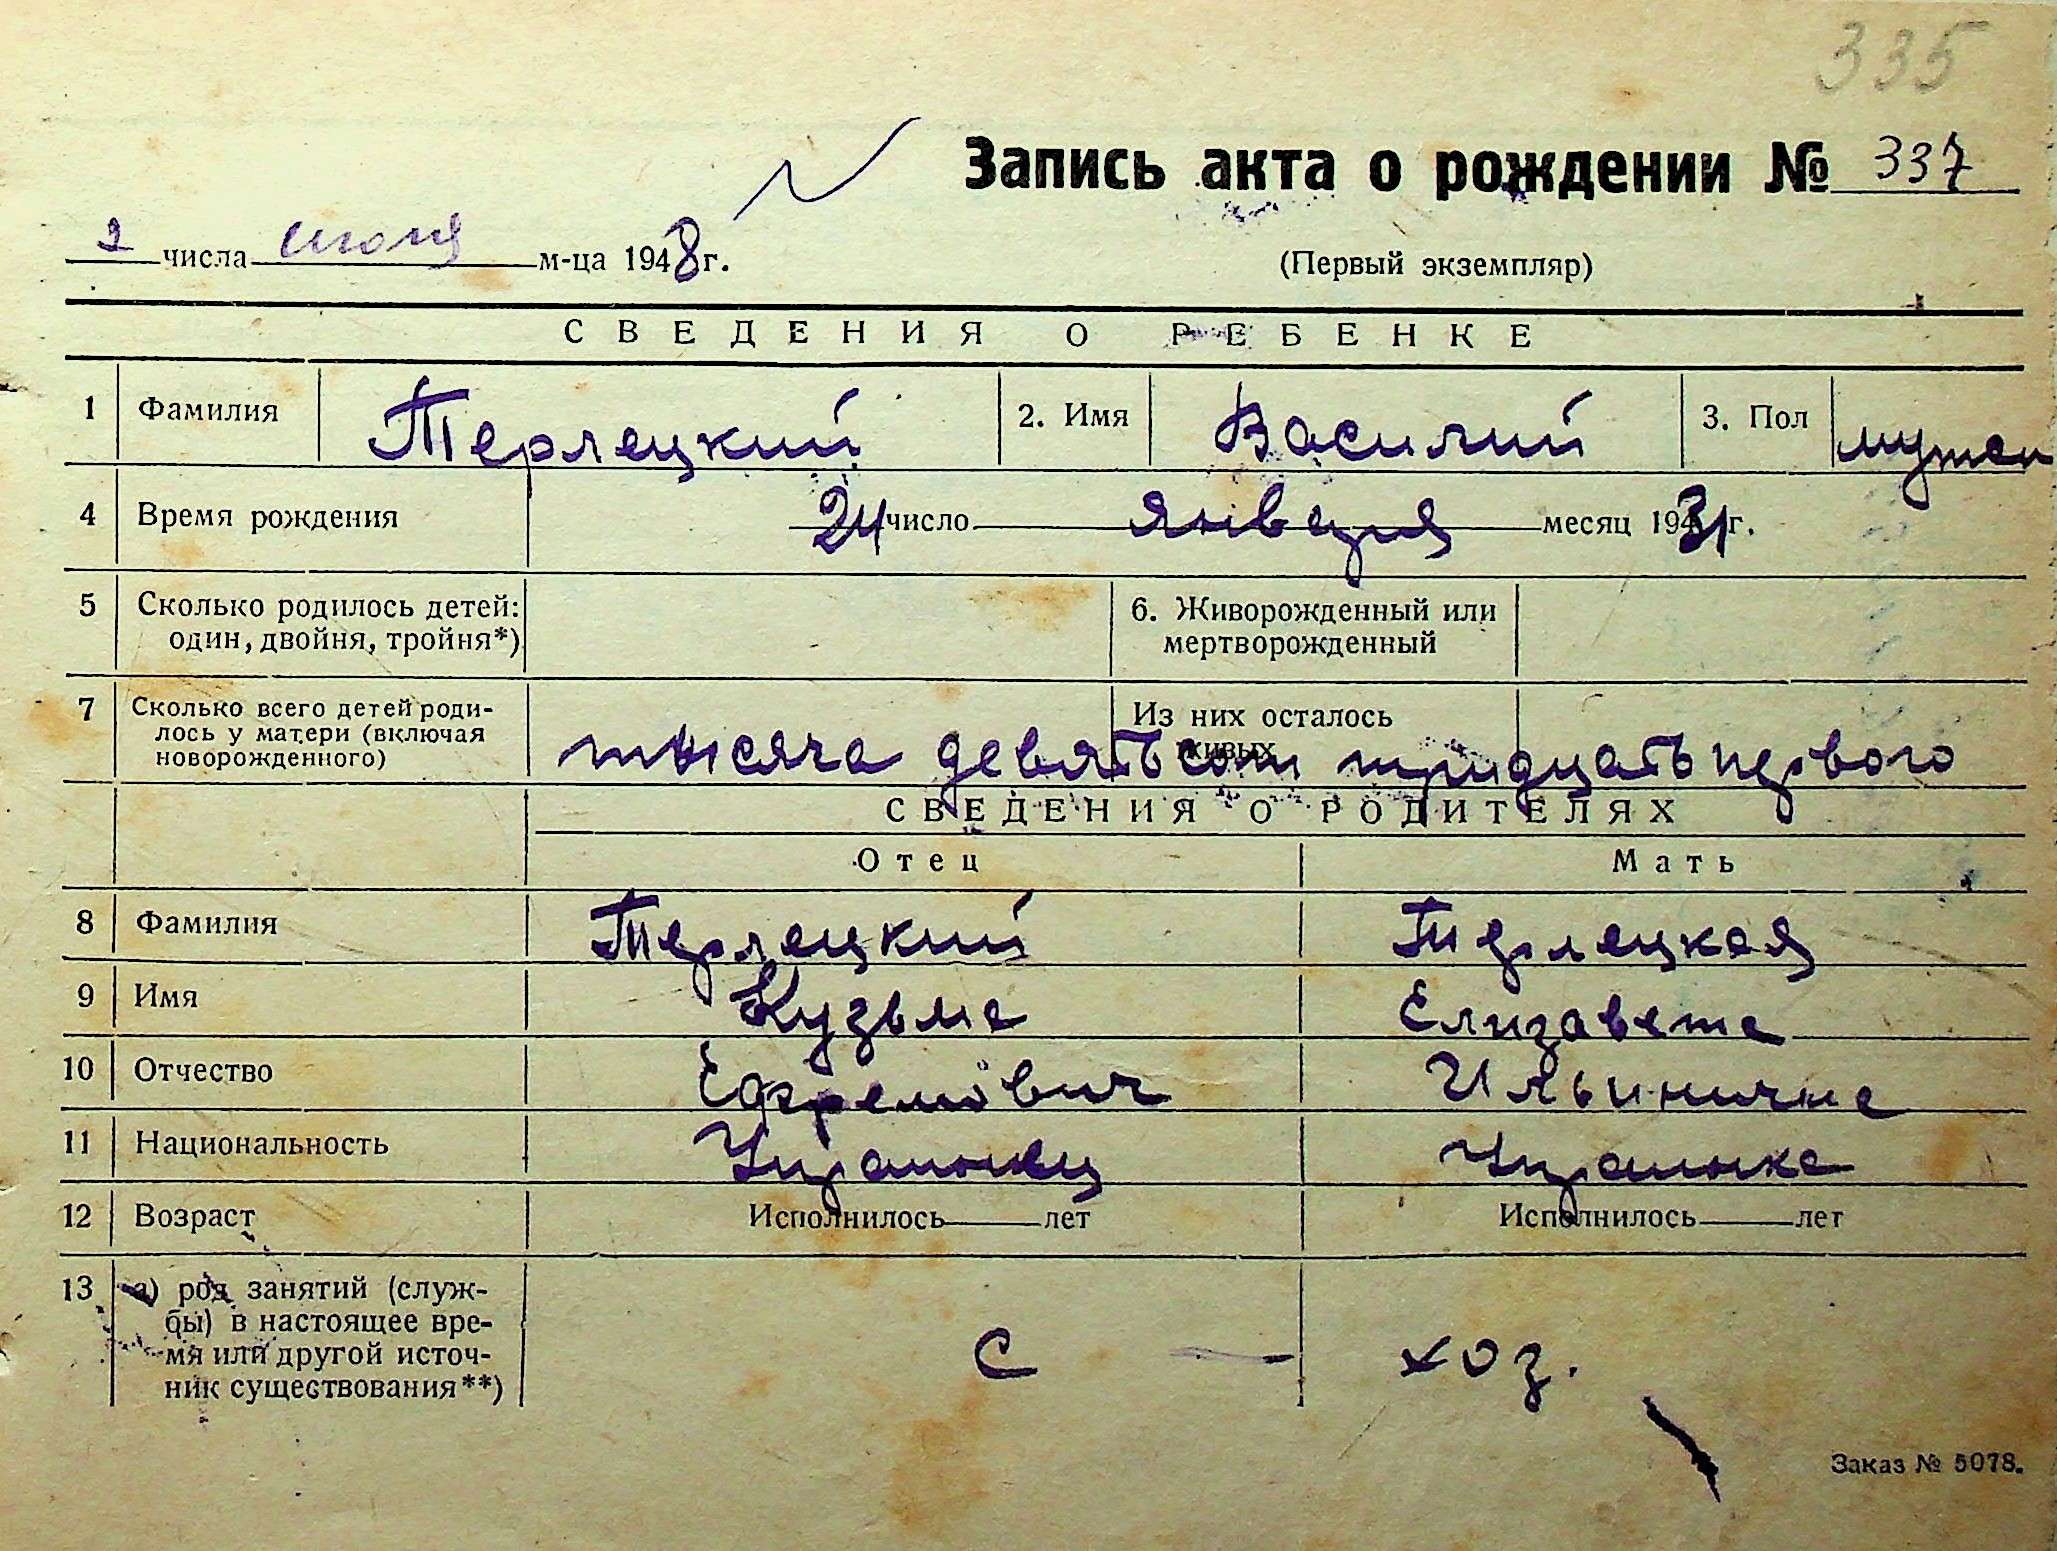 335
Запись акта о рождении № 337
2 числа июля м-ца 1948 г.
(Первый экземпляр)
СВЕДЕНИЯ О РЕБЕНКЕ
1 Фамилия Терлецкий 2. Имя Василий 3. Пол мужск
4 Время рождения 24 число января месяц 1931 г.
5 Сколько родилось детей: 6. Живорожденный или
один, двойня, тройня*) мертворожденный
7 Сколько всего детей роди- Из них осталось
лось у матери (включая живых
новорожденного) тысяча девятьсот тридцать первого
СВЕДЕНИЯ О РОДИТЕЛЯХ
Отец Мать
8 Фамилия Терлецкий Терлецкая
9 Имя Кузьма Елизавета
10 Отчество Ефремович Ильинична
11 Национальность Украинец Украинка
12 Возраст Исполнилось лет Исполнилось лет
13 а) род занятий (служ-
бы) в настоящее вре-
мя или другой источ- с — хоз.
ник существования**)
Заказ № 5078.